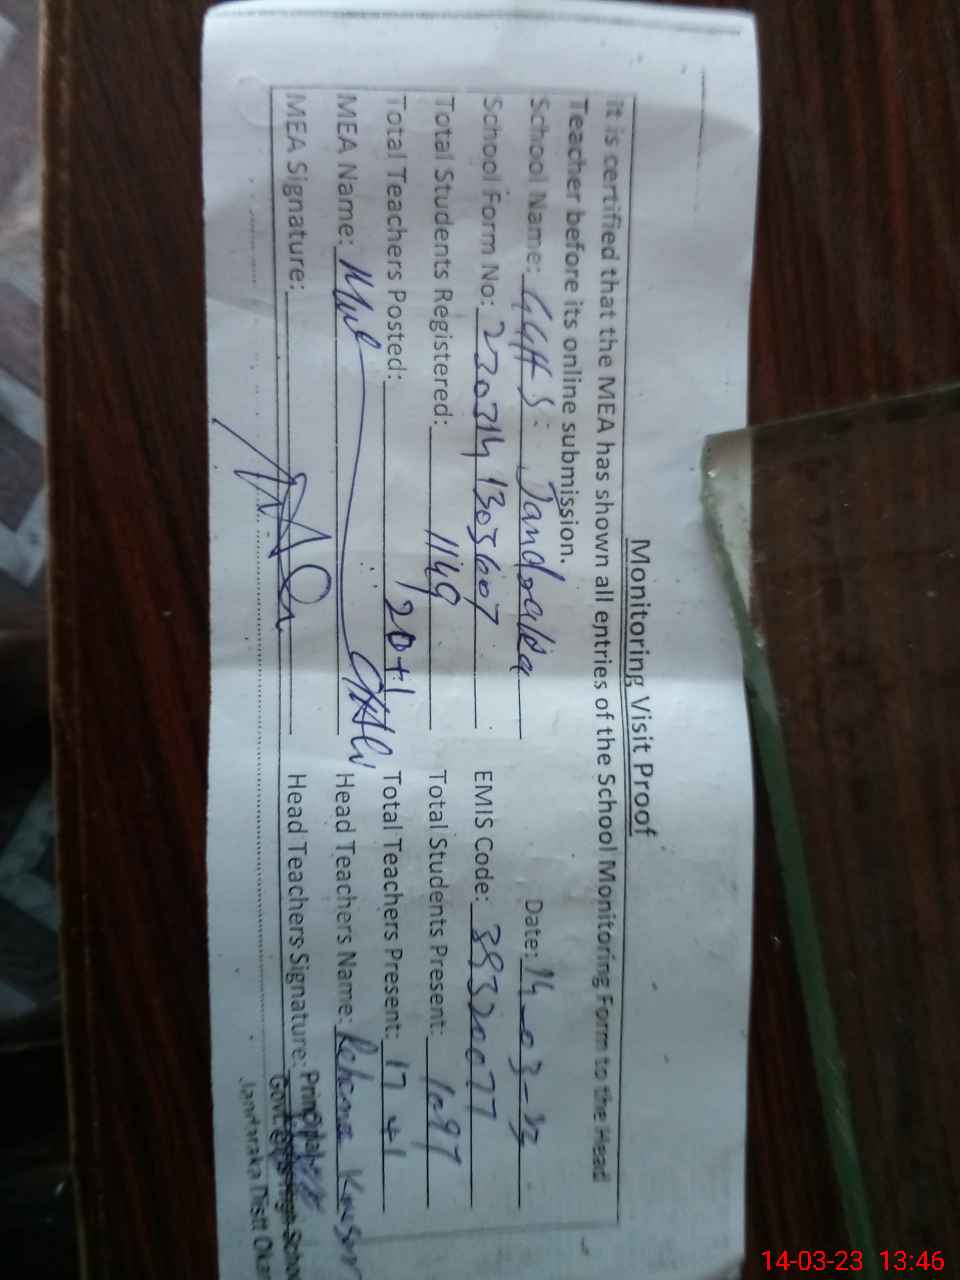 Monitoring Visit Proof
it is certified that the MEA has shown all entries of the School Monitoring Form to the Head
Teacher before its online submission.
School Name: GGHS: Jandraka Date: 14-03-23
School Form No: 2303141303607 EMIS Code: 39320077
Total Students Registered: 1149 Total Students Present: 1097
Total Teachers Posted: 20+1 Total Teachers Present: 17+1
MEA Name: Head Teachers Name: Rehana Kausar
MEA Signature: Head Teachers Signature: Principal
Govt. High School
Jandraka Distt Oka
14-03-23 13:46